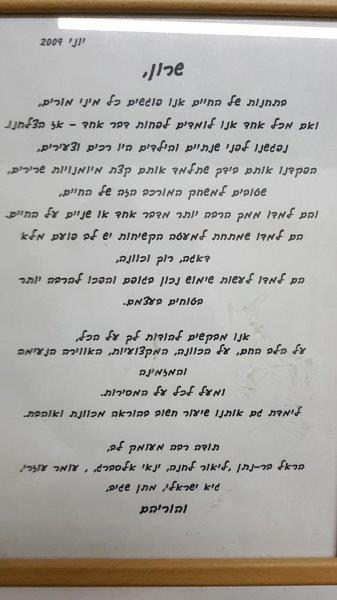 יוני 2009
שרון,
בתחנות של החיים אנו פוגשים כל מיני מורים,
ואם מכל אחד אנו לומדים לפחות דבר אחד – אז הצלחנו.
נפגשנו לפני שנתיים והילדים היו רכים וצעירים,
הפקדנו אותם בידך שתלמד אותם קצת מיומנויות שרירים,
שטובים למשחק המורכב הזה של החיים,
והם למדו ממך הרבה יותר מדבר אחד או שניים על החיים.
הם למדו שמתחת למעטה הקשיחות יש לב פועם מלא
דאגה, רוך וכוונה,
הם למדו לעשות שימוש נכון בגופם והפכו להרבה יותר
בטוחים בעצמם.
אנו מבקשים להודות לך על הכל,
על הלב החם, על הכוונה, המקצועיות, האווירה הנעימה
והמזמינה
ומעל לכל על המסירות.
לימדת גם אותנו שיעור חשוב בהוראה מכוונת ואוהבת.
תודה רבה מעומק לב,
הראל בר-נתן ,ליאור לחנה, ינאי אלסברג, , עומר עוזרי,
גיא ישראלי, מתן שגיב,
והוריהם